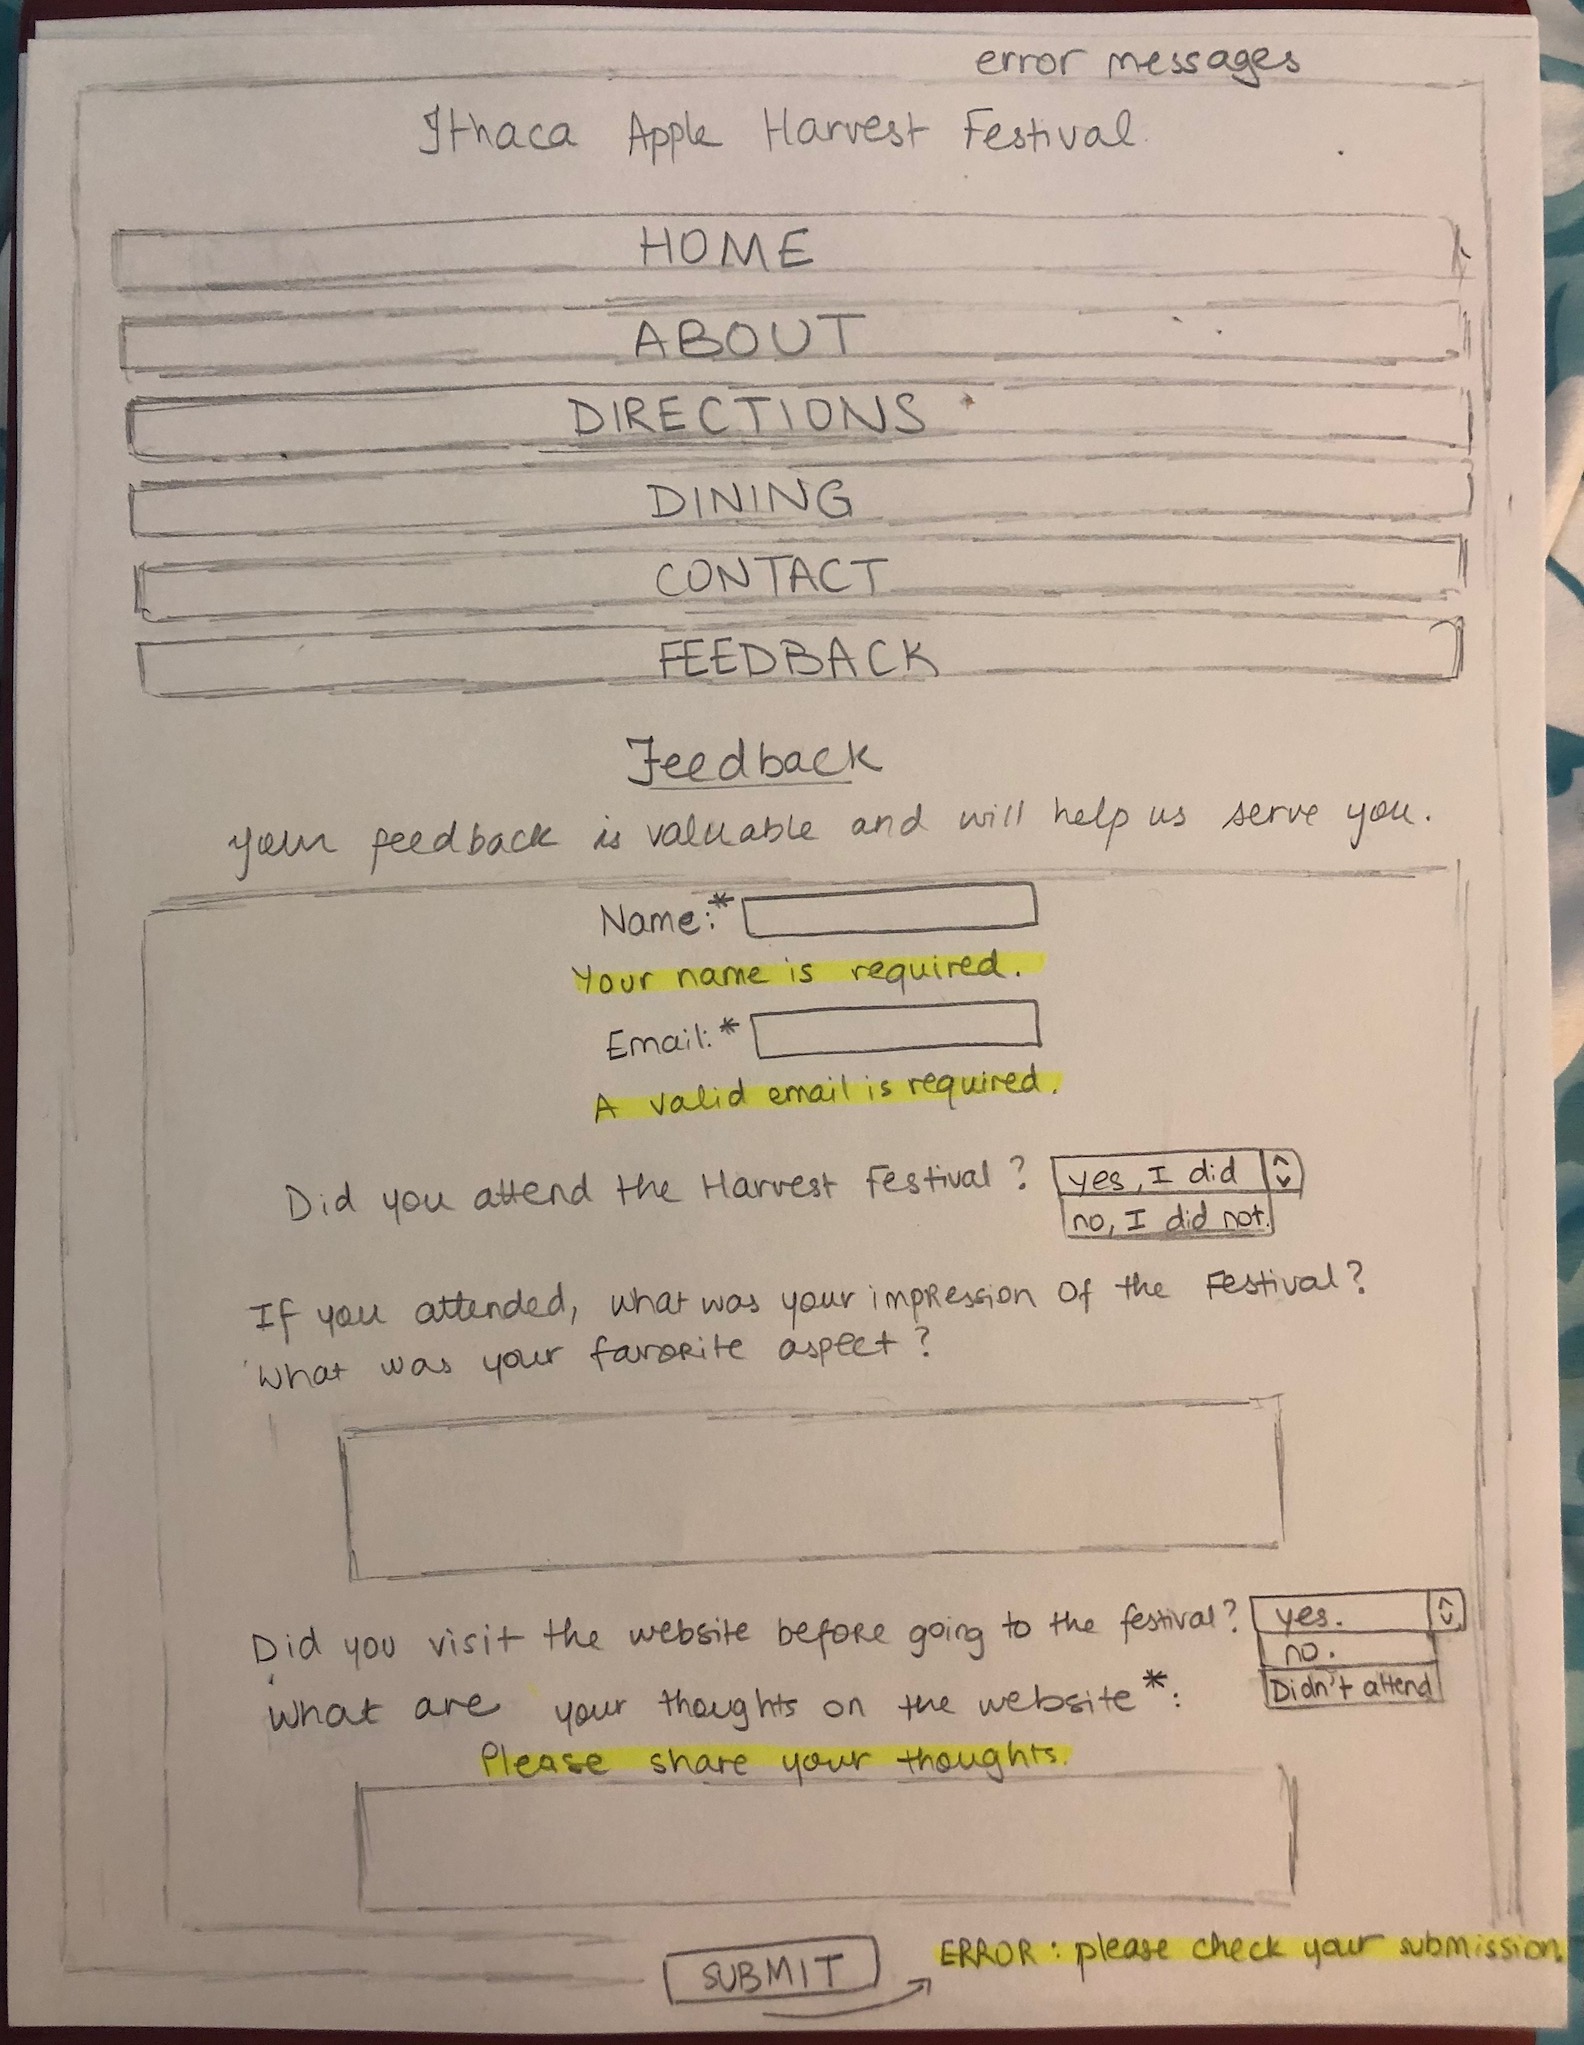 error messages
Ithaca Apple Harvest Festival
HOME
ABOUT
DIRECTIONS
DINING
CONTACT
FEEDBACK
Feedback
your feedback is valuable and will help us serve you.
Name:*
Your name is required.
Email:*
A valid email is required.
Did you attend the Harvest Festival? yes, I did
no, I did not.
If you attended, what was your impression of the Festival?
What was your favorite aspect?
Did you visit the website before going to the festival? yes.
no.
Didn't attend
What are your thoughts on the website*:
Please share your thoughts.
SUBMIT
ERROR: please check your submission.